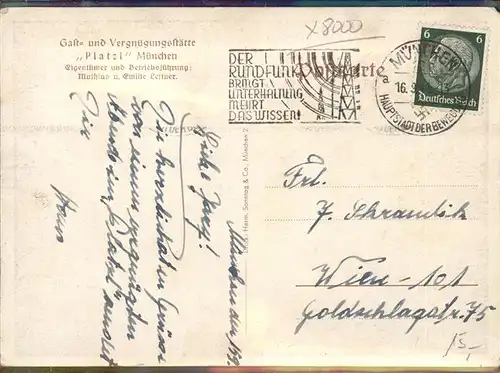 x8000
Gast- und Vergnügungsstätte
„Platzl" München
Eigentümer und Betriebsführung:
DER
RUNDFUNK
BRINGT
UNTERHALTUNG
MEHRT
DAS WISSEN!
Postkarte
MÜNCHEN
16.9
HAUPTSTADT DER BEWEG
6 6
Deutsches Reich
München den
Liebe
Die herzlichsten Grüsse
von einem vergnügten
Abende im „Platzl" sendet
Dir
Hans
Frl.
J. Schramlik
Wien - 101
Goldschlagstr. 75
15,-
Hans. Sonntag & Co., München 2